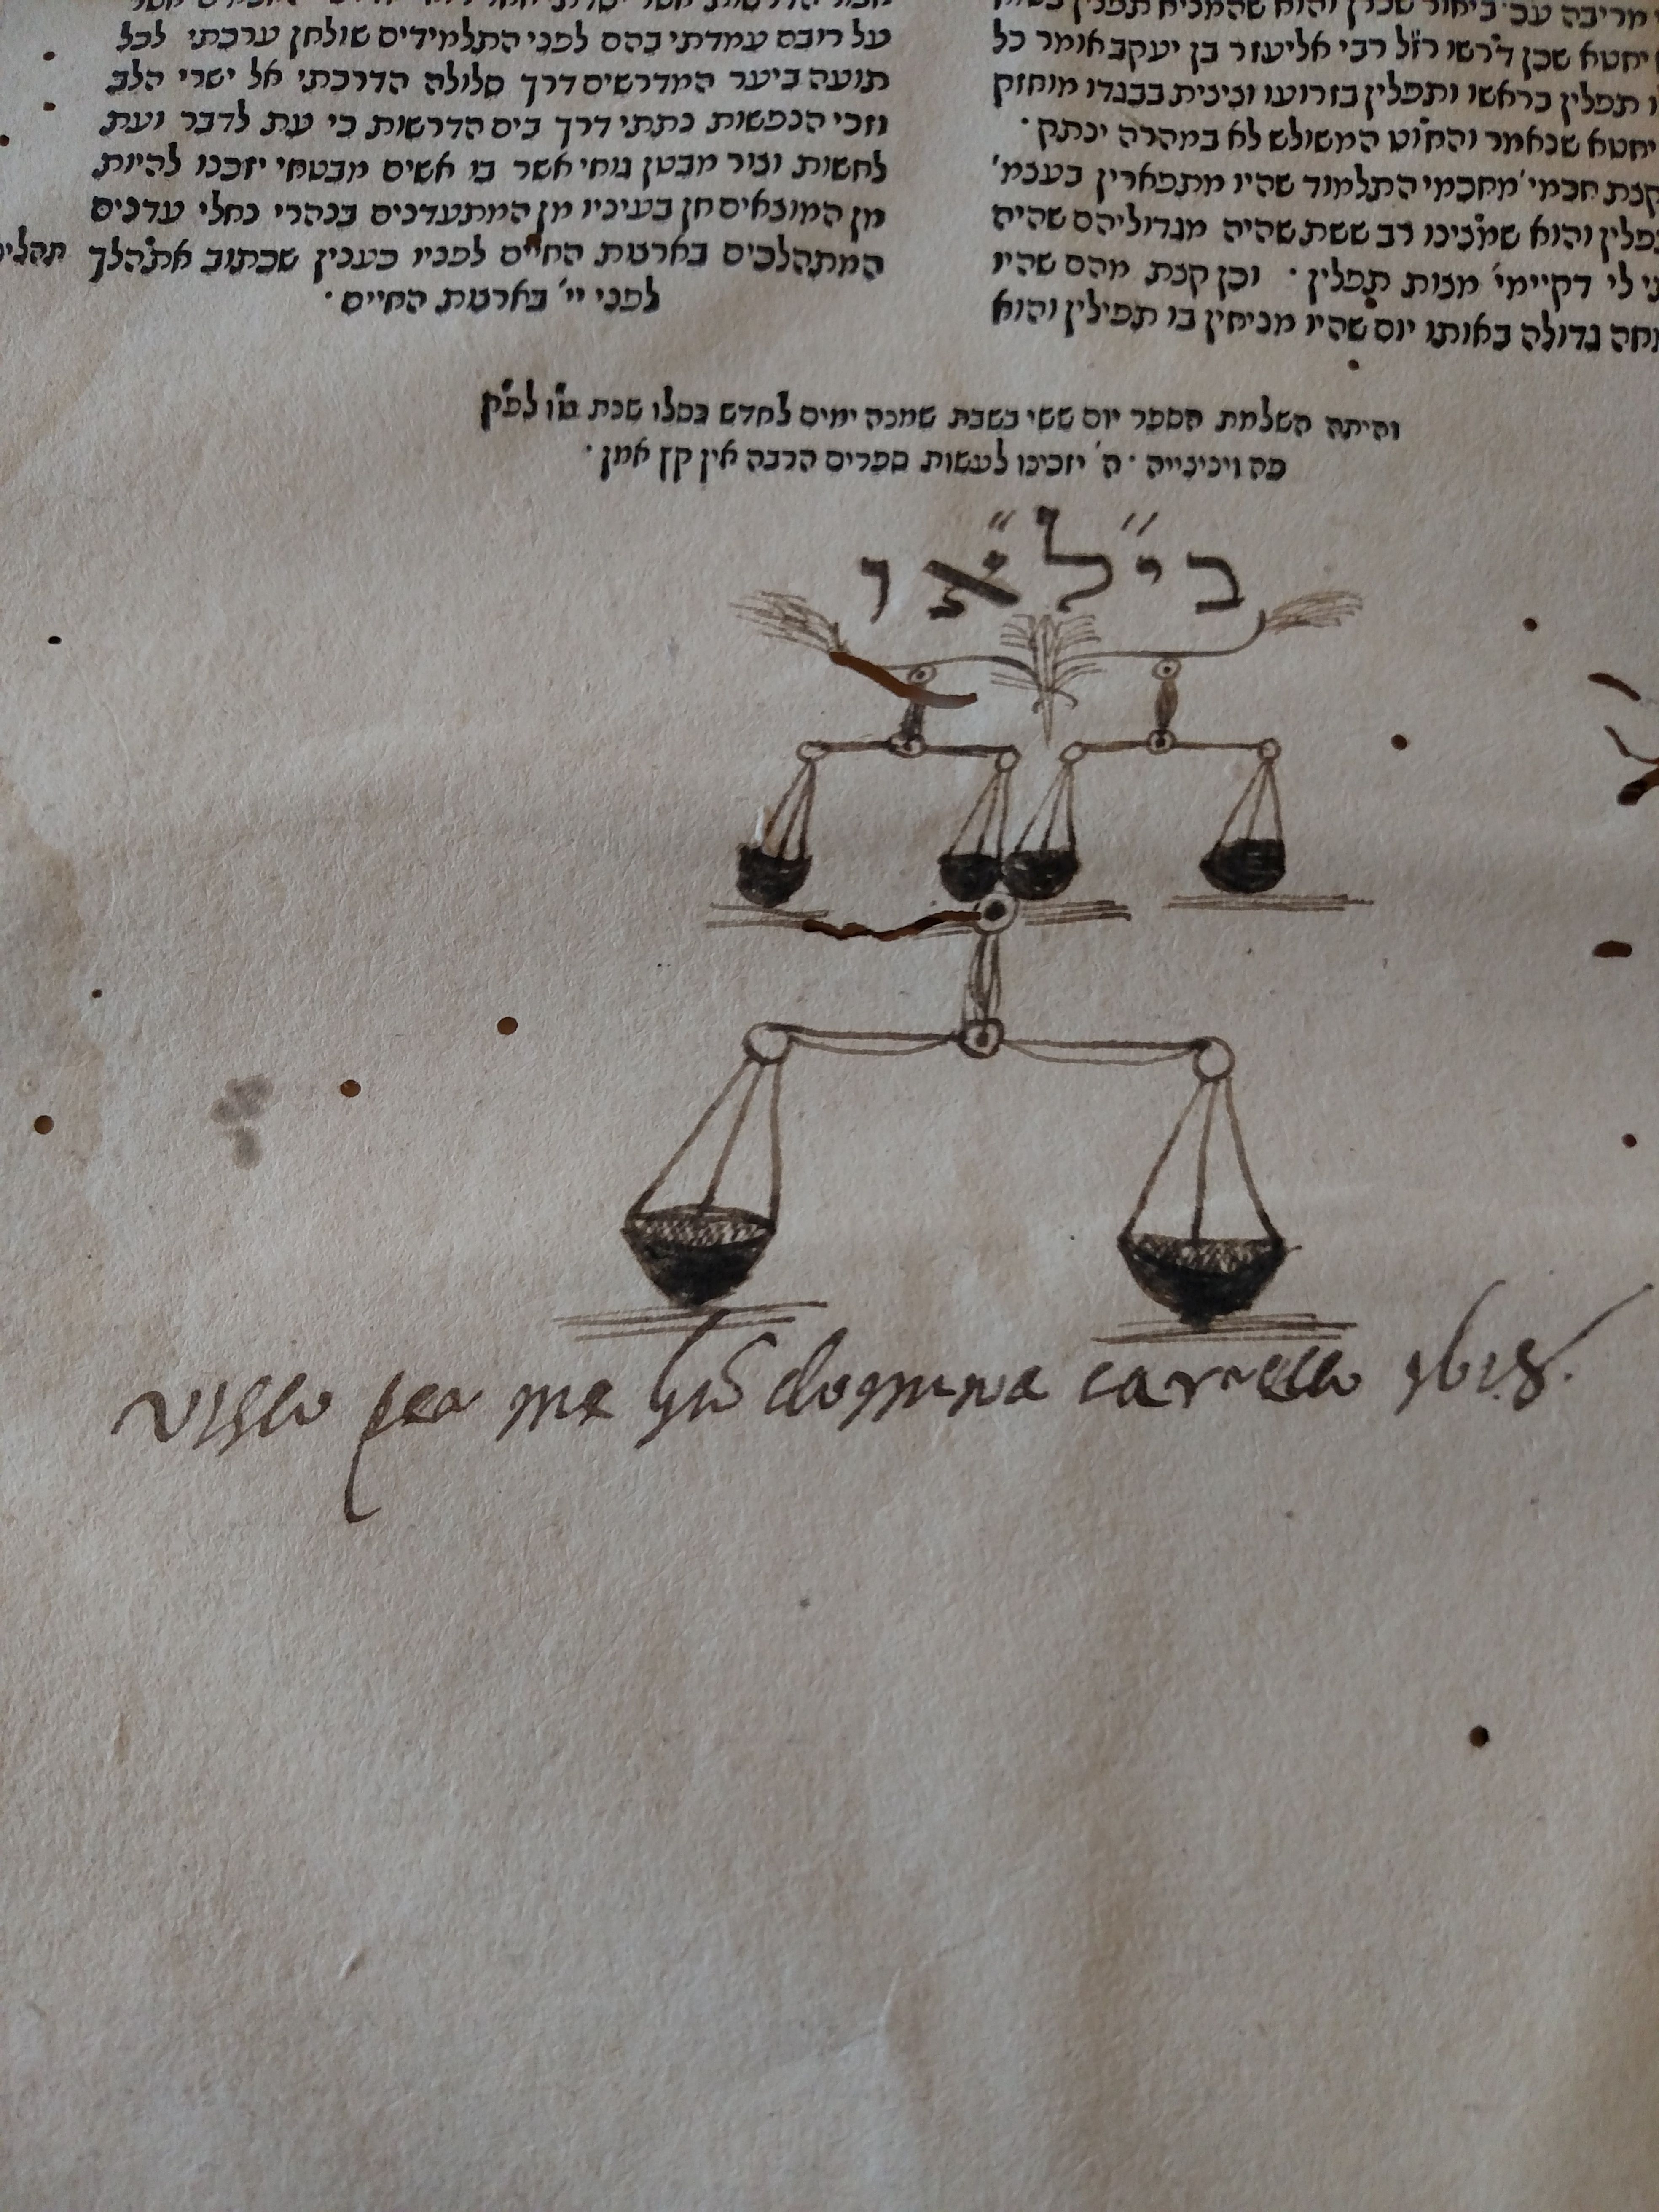 מריבה עכ׳ ביאור שכרן והוא שהמניח תפלין
יחטא שכן דרשו רז״ל רבי אליעזר בן יעקב אומר כל
תפלין בראשו ותפלין בזרועו וציצית בבגדו מוחזק
יחטא שנאמר והחוט המשולש לא במהרה ינתק ·
קצת חכמי׳ מחכמי התלמוד שהיו מתפארין בעצמ׳
והוא שמצינו רב ששת שהיה מגדוליהם שהיה
לי דקיימי׳ מצות תפלין · וכן קצת מהם שהיו
גדולה באותו יום שהיו מניחין בו תפילין והוא
על רובם עמדתי בהם לפני התלמידים שולחן ערכתי לכל
תועה ביער המדרשים דרך סלולה הדרכתי אל ישרי הלב
וזכי הנפשות נתתי דרך בים הדרשות כי עת לדבר ועת
לחשות וצור מבטן גוחי אשר בו אשים מבטחי יזכנו להיות
מן המוצאים חן בעיניו מן המתעדנים בנהרי נחלי עדנים
המתהלכים בארצות החיים לפניו כענין שכתוב אתהלך
לפני יי׳ בארצות החיים ·
והיתה השלמת הספר יום ששי בשבת שמנה ימים לחדש כסלו שנת
פה ויניזייה · ה׳ יזכינו לעשות ספרים הרבה אין קץ אמן ·
בי״ל״או
visto per me